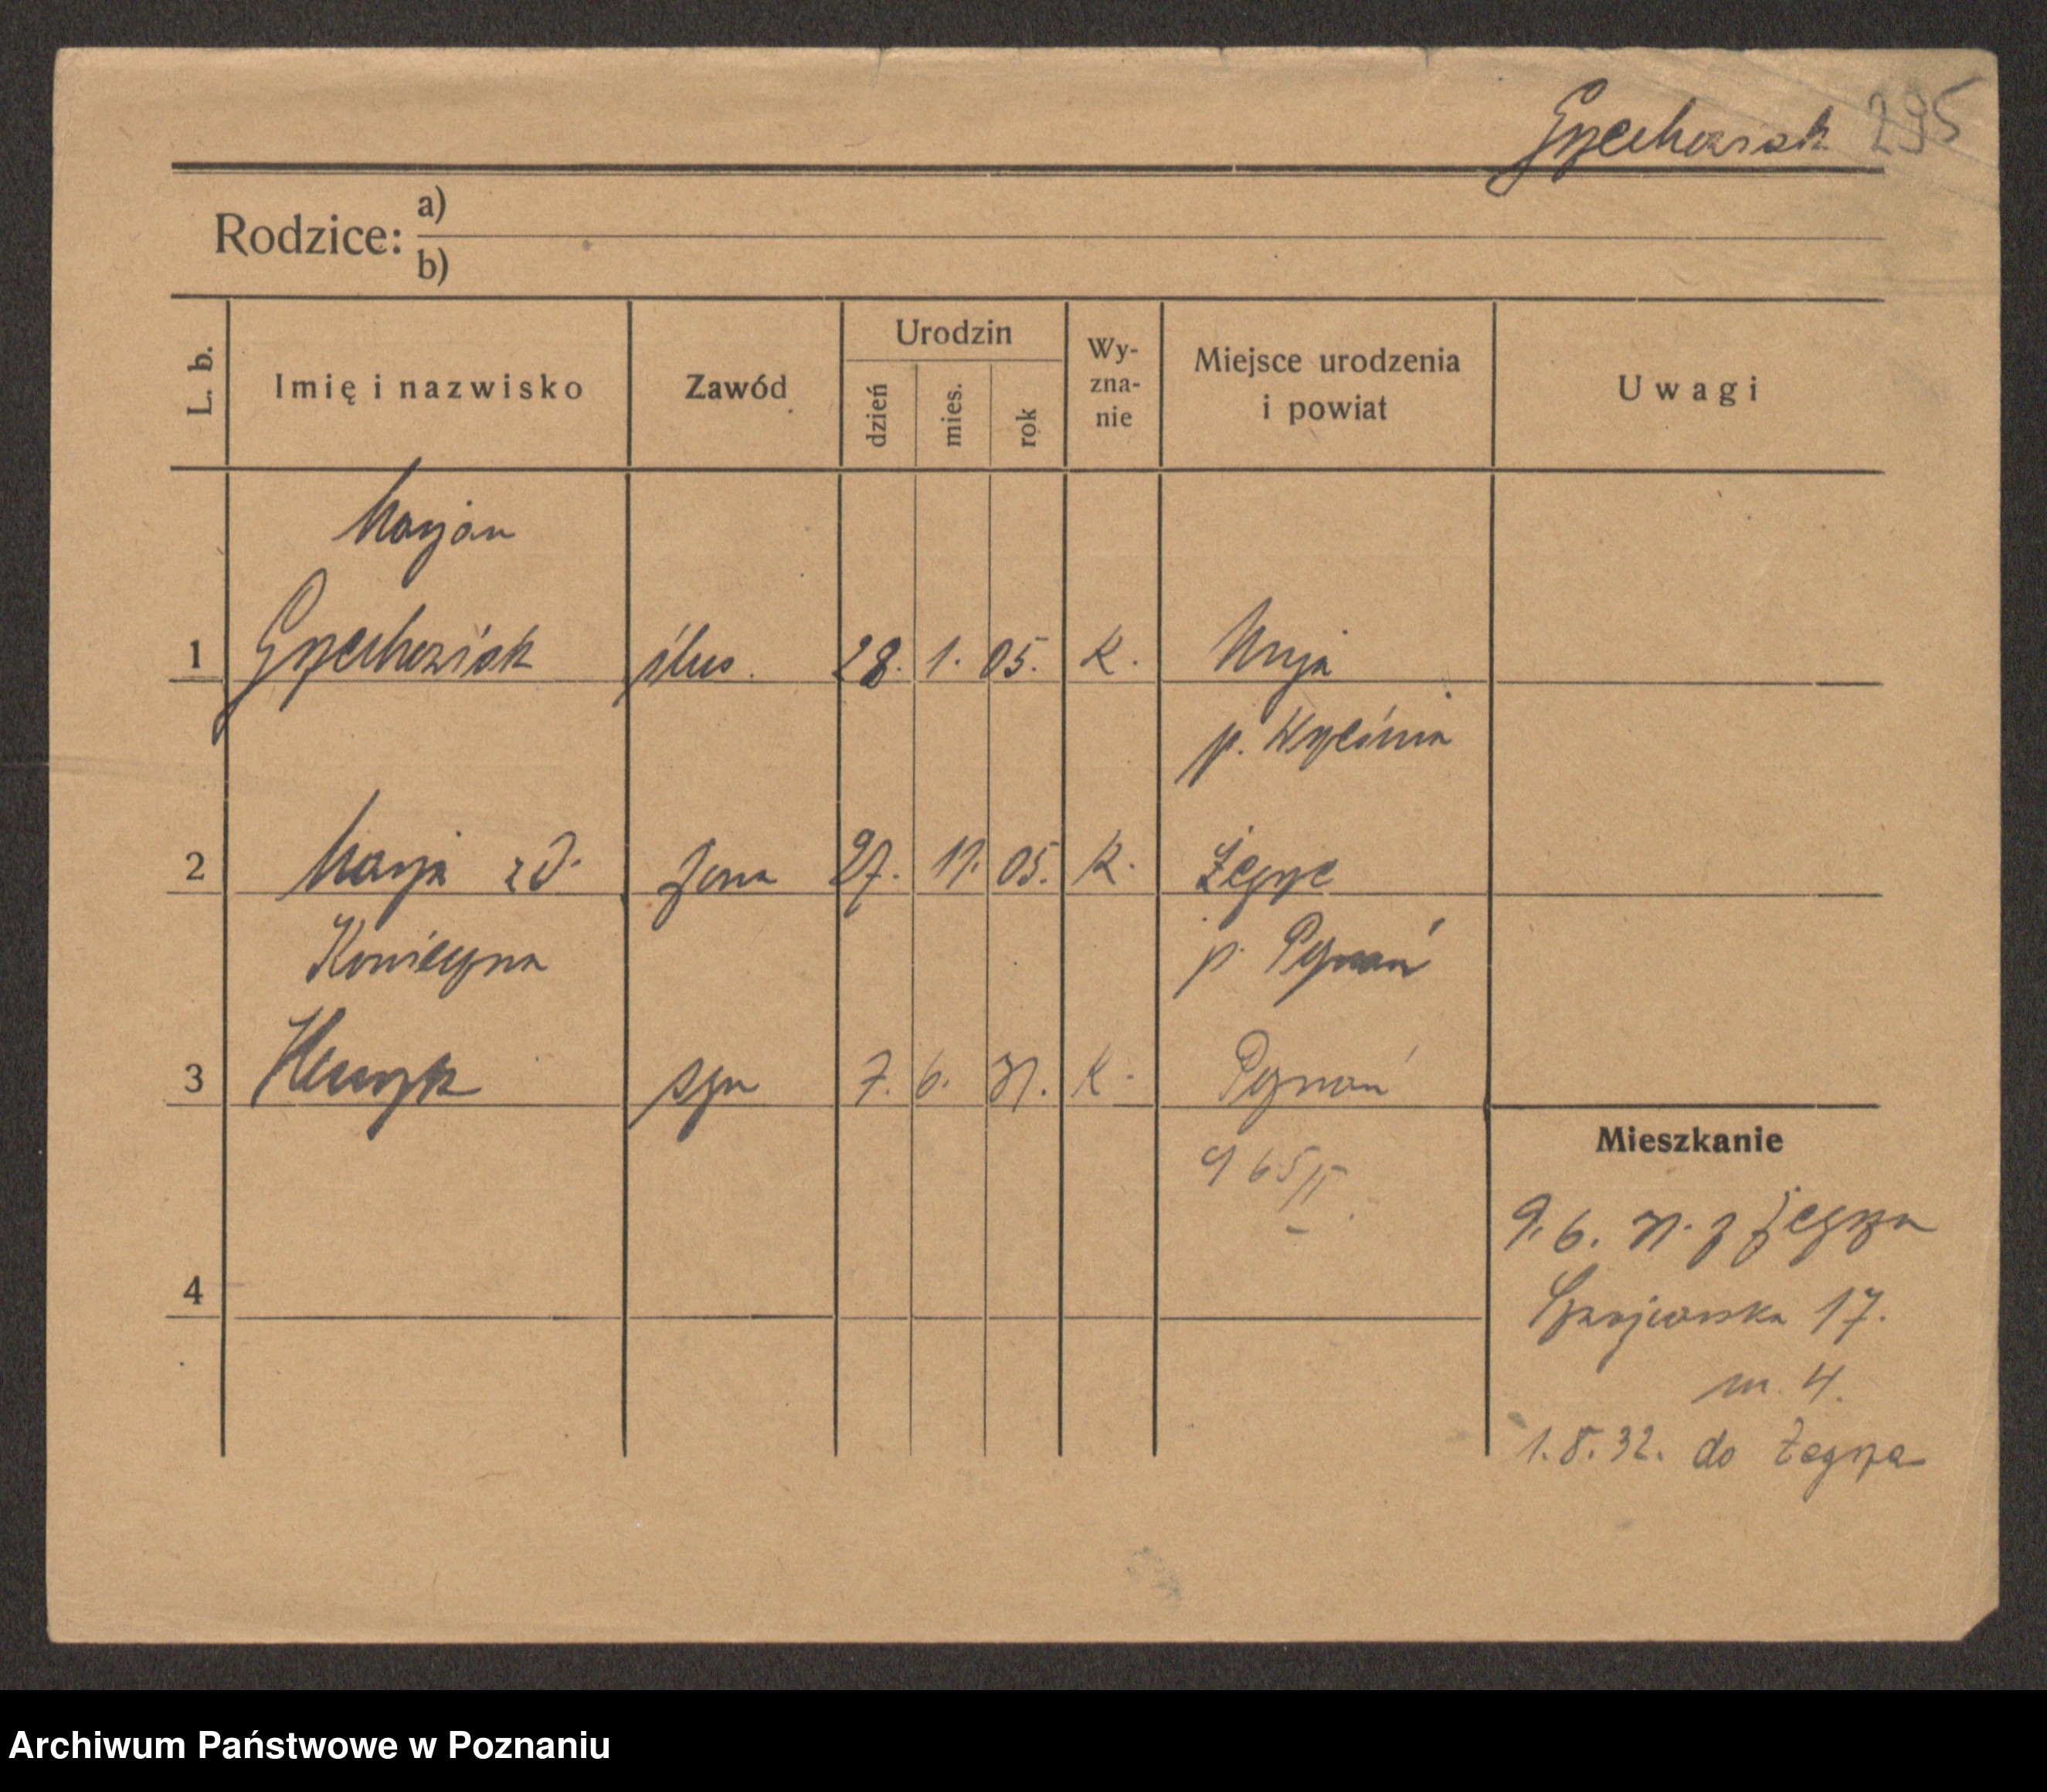 Grzechowiak 295
Rodzice: a)
b)
L. b.
Imię i nazwisko
Zawód
Urodzin
dzień
mies.
rok
Wy-
zna-
nie
Miejsce urodzenia
i powiat
Uwagi
Marjan
1 Grzechowiak ślus. 28. 1. 05. K.
p. Września
2 Marja z d. żona 27. 11. 05. K. Żegrze
Konieczna p. Poznań
3 Henryk syn 7. 6. 31. K. Poznań
Mieszkanie
9. 6. 31. z Żegrza
17.
4
m. 4.
1. 8. 32. do Żegrza
Archiwum Państwowe w Poznaniu